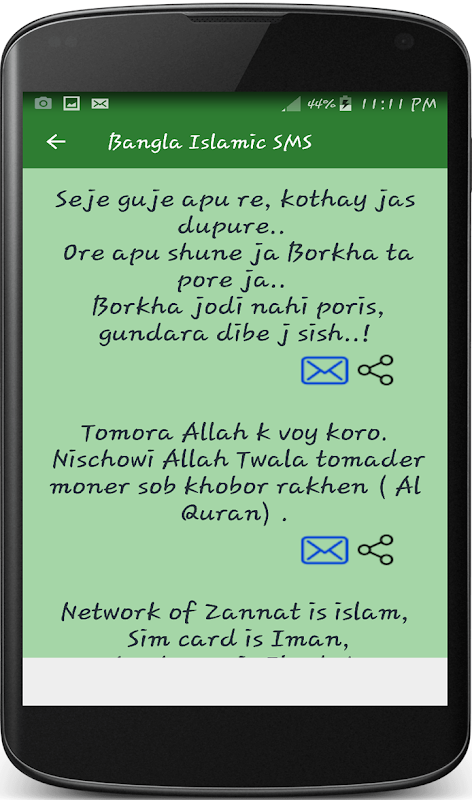 44% 11:11 PM
Bangla Islamic SMS
Seje guje apu re, kothay jas
dupure..
Ore apu shune ja Borkha ta
pore ja..
Borkha jodi nahi poris,
gundara dibe j sish..!
Tomora Allah k voy koro.
Nischowi Allah Twala tomader
moner sob khobor rakhen ( Al
Quran) .
Network of Zannat is islam,
Sim card is Iman,